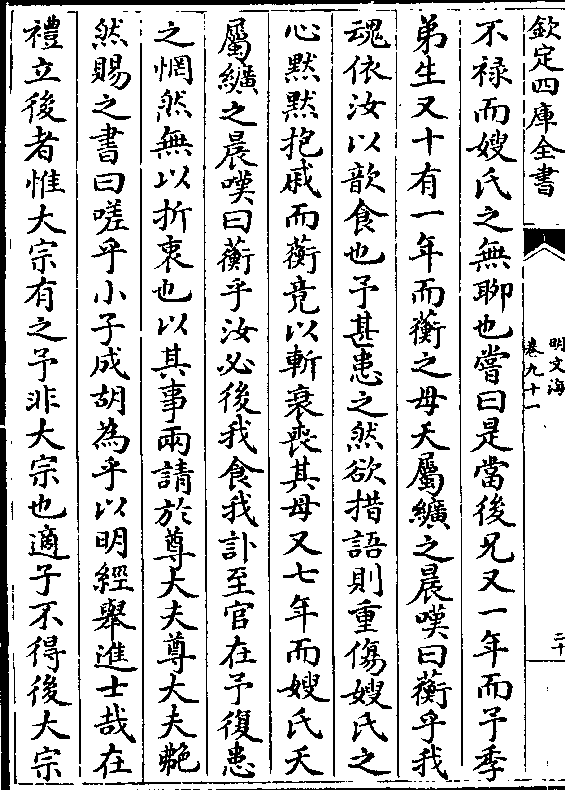 欽定四庫全書
明文海
卷九十一
二十
不祿而嫂氏之無聊也嘗曰是當後兄又一年而予季
弟生又十有一年而蘅之母夭屬纊之晨嘆曰蘅乎我
魂依汝以歆食也予甚患之然欲措語則重傷嫂氏之
心黙黙抱戚而蘅竟以斬衰喪其母又七年而嫂氏夭
屬纊之晨嘆曰蘅乎汝必後我食我訃至官在予復患
之惘然無以折衷也以其事兩請於尊大夫尊大夫艴
然賜之書曰嗟乎小子成胡為乎以明經舉進士哉在
禮立後者惟大宗有之予非大宗也適子不得後大宗